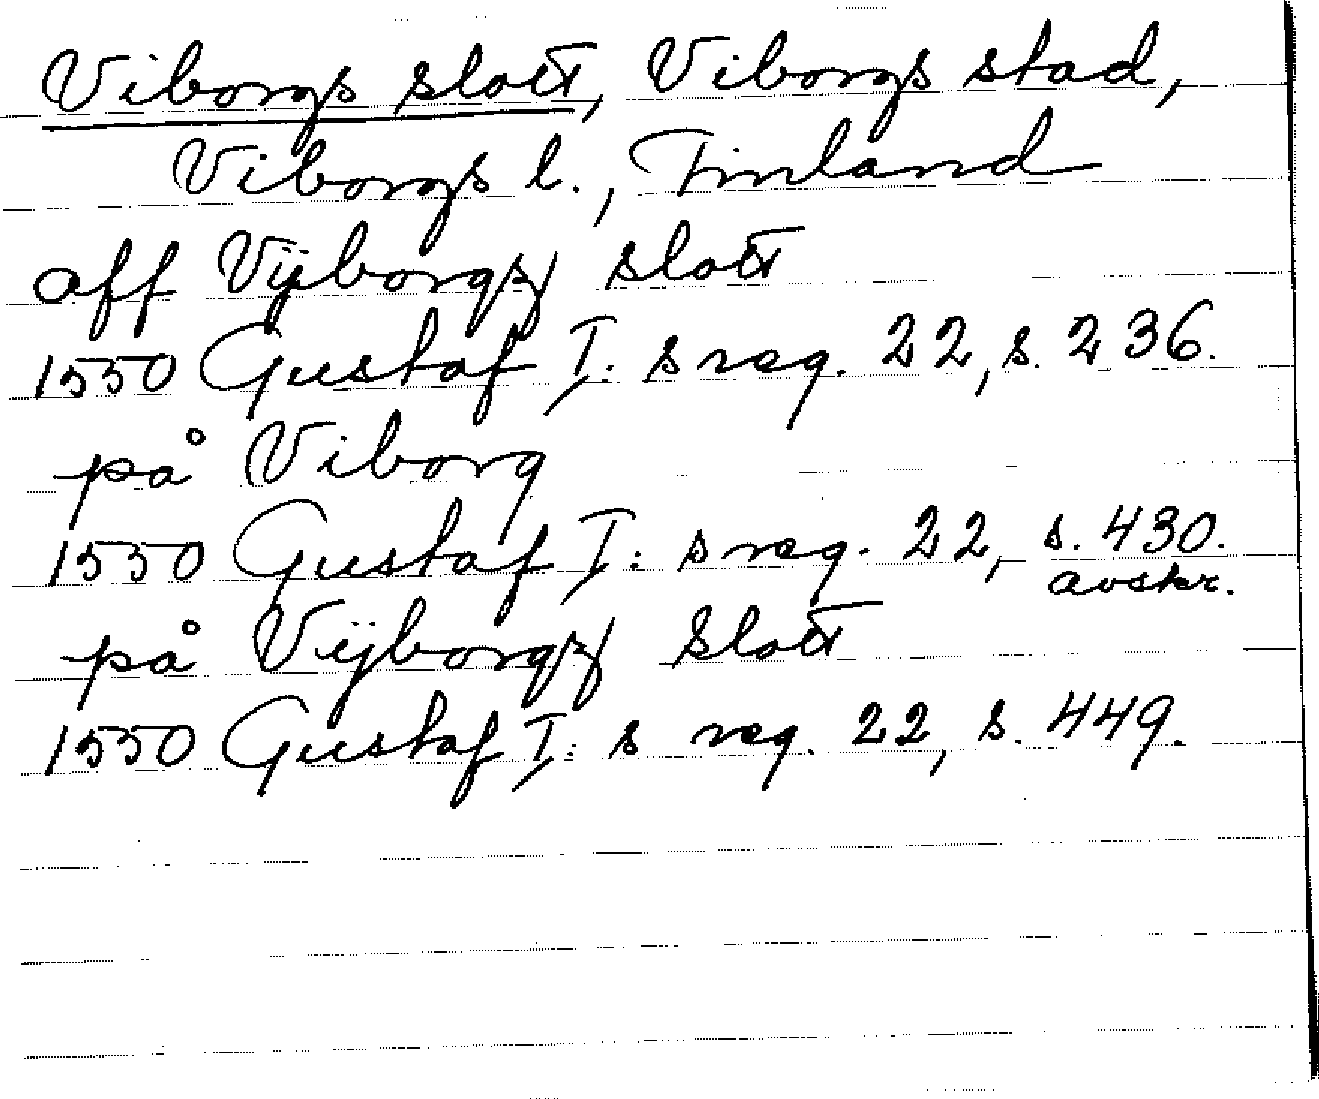 Viborgs slott, Viborgs stad,
Viborgs l., Finland
aff Vijborgz slott
1550 Gustaf I: s reg. 22, s. 236.
på Viborg
1550 Gustaf I: s reg. 22, s. 430.
avskr.
på Vijborgz Slott
1550 Gustaf I: s reg. 22, s. 449.